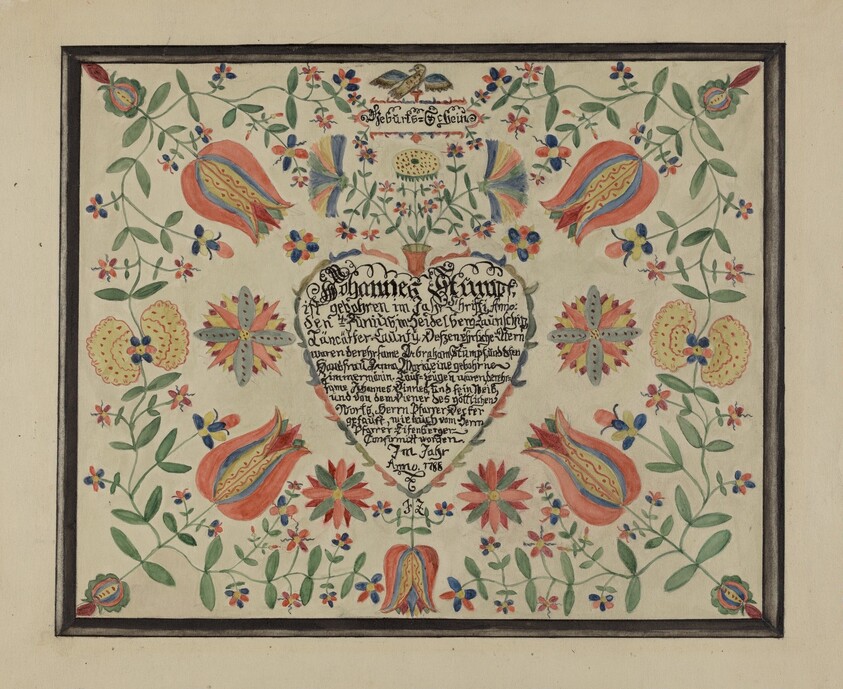 Geburts=Schein
Johannes Stumpf,
ist gebohren im Jahr Christi Anno:
den Juni Heidelberg Taunschip
Lancaster Caunty Deszen ehrliche Eltern
waren der ehrsame Abraham Stumpf und deßen
Hausfrau Anna Maria eine gebohrne
Zimmermänin. Tauf-zeugen waren der ehr=
same und sein Weib,
und von dem Diener des göttlichen
Worts, Herrn Pfarrer
getauft, wie auch vom Herrn
Pfarrer
Confirmirt worden.
Im Jahr
Anno, 1788